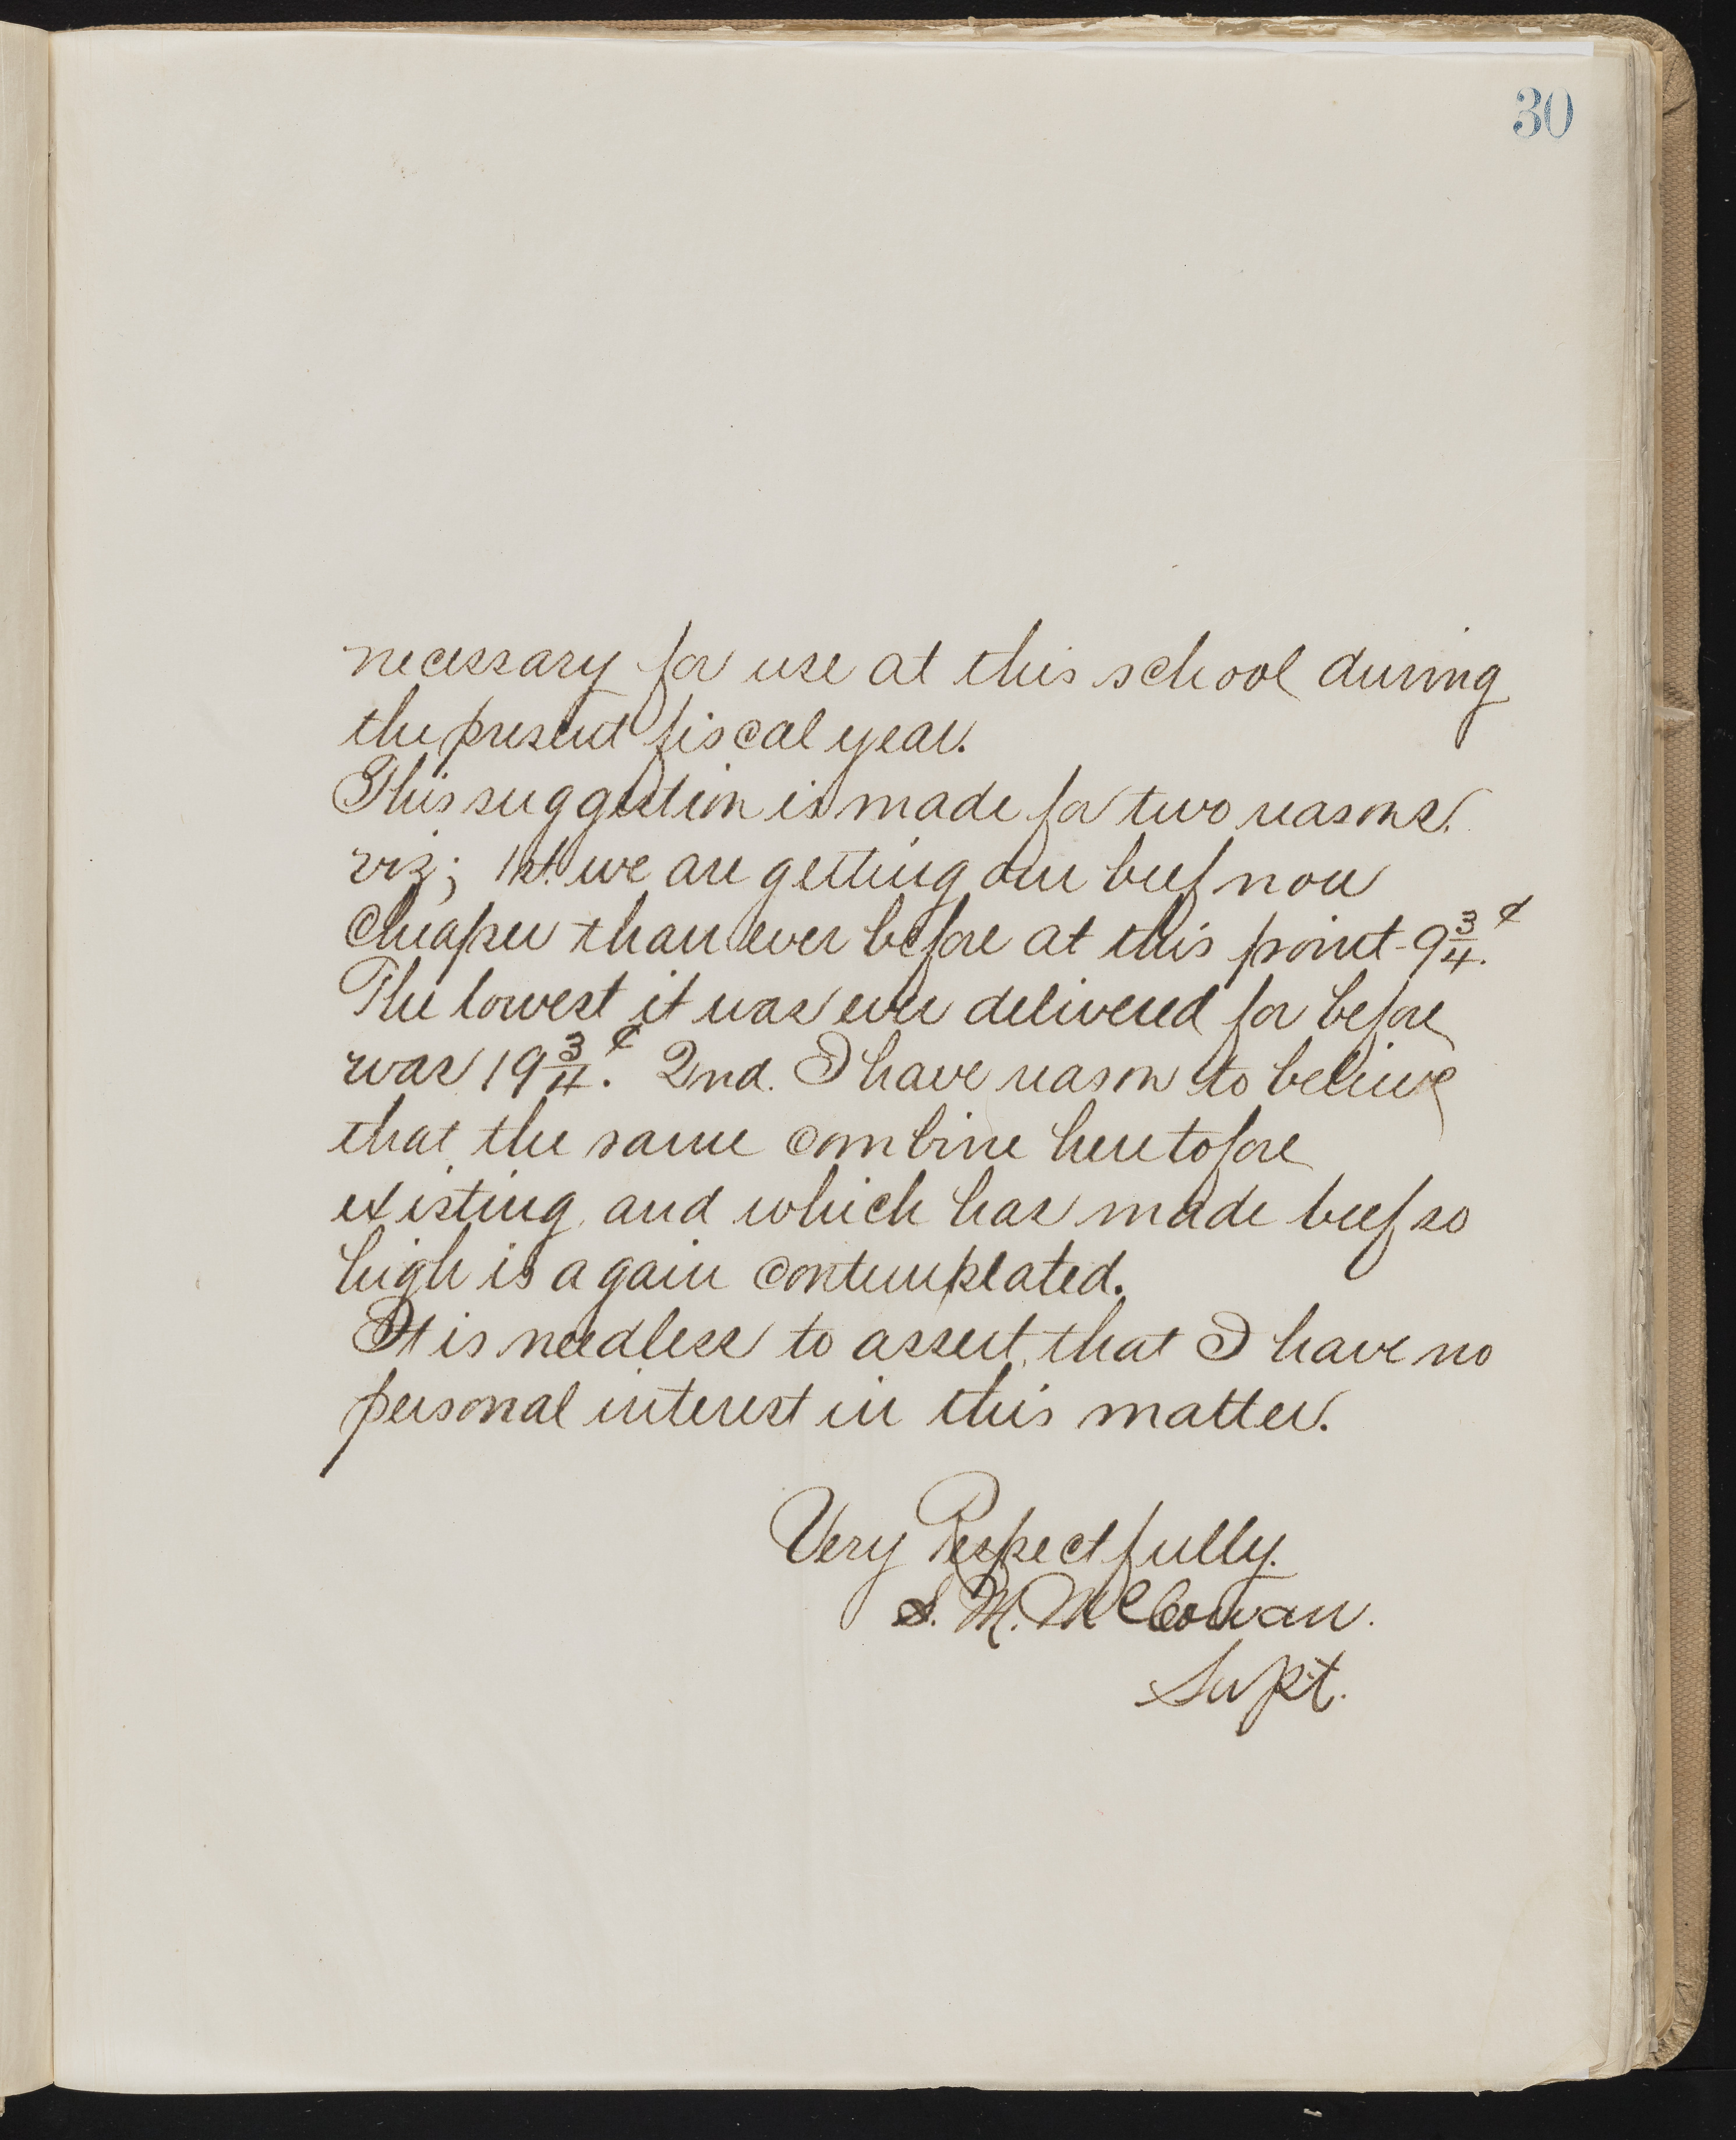 30
necessary for use at this school during
the present fiscal year.
This suggestion is made for two reasons.
viz; 1st. we are getting our beef now
cheaper than ever before at this point - 9 3/4 ¢.
The lowest it was ever delivered for before
was 19 3/4 ¢. 2nd. I have reason to believe
that the same combine heretofore
existing, and which has made beef so
high is again contemplated.
It is needless to assert, that I have no
personal interest in this matter.
Very Respectfully.
S. M. McCowan.
Supt.